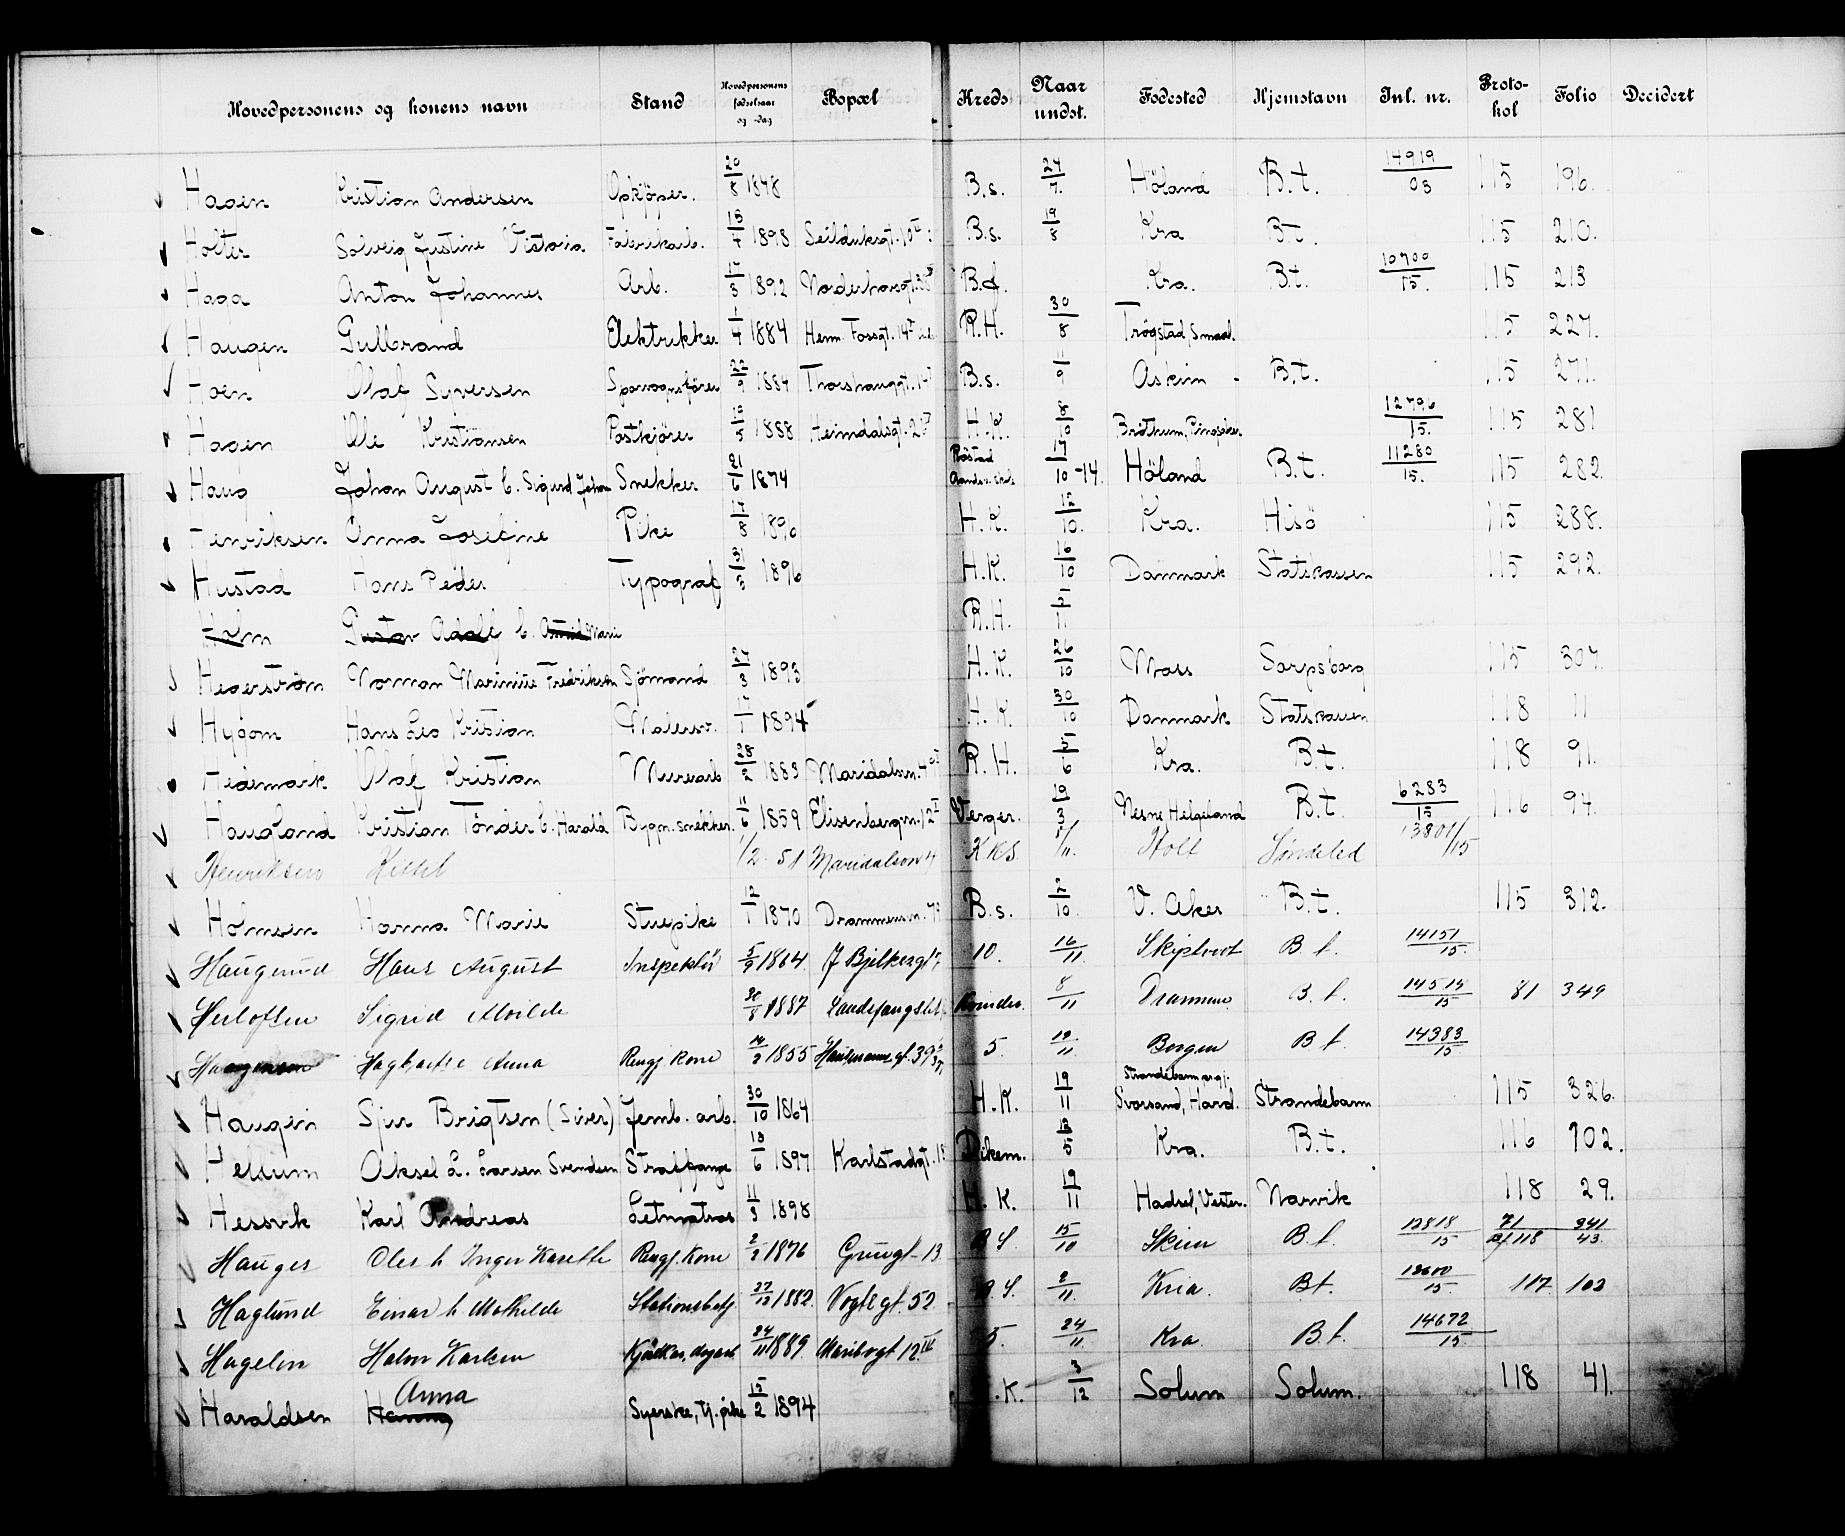 Hovedpersonens og konens navn Stand Hovedpersonens fødselsaar og -dag Bopæl Kreds Naar undst. Fødested Hjemstavn Inl. nr. Protokol Folio Decidert
Hagen Kristian Andersen Opkjöper. 20/8 1848 B.s. 24/7. Höland B.t. 14919/03 115 196.
Holter Solveig Justine Victoria Fabrikarb. 13/7 1898 Seilduksgt. 10 B.s. 19/8 Kra B.t. 115 210.
Haga Anton Johannes Arb. 1892 Kra. B.t. 10700/15. 115 213
Haugen Gulbrand Elektrikker 1/7 1884 Herm. Fossgt. 14 R.H. 30/8 Trögstad, Smaal. 115 227.
Hoen Olaf Syversen 22/9 1884 Thorshauggt. B.s. 11/9 Askim B.t. 115 271.
Hagen Ole Kristiansen Postkjörer 1888 Heimdalsgt. 2 H.K. 8/10 12796/15. 115 281
Haug Johan August C. Sigurd Johan Snekker 21/6 1874 17/10-14. Höland B.t. 11280/15. 115 282.
Henriksen Anna Josefine Pike 17/8 1896 H.K. 12/10. Kra. Hisö 115 288.
Hustad Hans Peder Typograf 31/3 1896 H.K. 16/10 Danmark Statskassen 115 292.
Holm Gustav Adolf C. Astrid Marie R.H.
Hegerström Norman Marinius Fredriksen Sjömand 27/3 1893 H.K. 26/10 Moss Sarpsborg 115 307.
Hygom Hans Leo Kristian Malersv. 17/1 1894 H.K. 30/10 Danmark Statskassen 118 11
Hedemark Olaf Kristian Murerarb 28/2 1883 Maridalsvn. R.H. 5/6 Kra. B.t. 118 91.
Haugland Kristian Tönder C. Harald Bygn. snekker. 11/6 1859 Elisenbergvn. 12 I Verger. 19/3 Nesne Helgeland B.t. 6283/15 116 94.
Henriksen Kittel 1/2 51 Maridalsvn 4 5/11. Holt Söndeled 13801/15
Holmsen Hanna Marie Stuepike 12/1 1870 Drammensvn. B.s. 2/10. V. Aker B.t. 115 312.
Haugerud Hans August Inspektör 5/9 1864. J Bjelkesgt 10. 16/11 Skiptvet B.t. 14151/15.
Herlofsen Sigrid Alvilde 30/8 1887 Landsfangslet Kvinder. 8/11 Drammen B.t. 14515/15 81 349
Hagbartte Anna Rengj. kone 1855 Hausmannsgt. 39 5. 19/11 Bergen B.t. 14383/15
Haugen Sjur Brigtsen (Siver) Jernb. arb. 30/10 1864 H.K. 19/11 Strandebarm prgj. Svorsand, Hard. Strandebarm 115 326.
Hellum Aksel L. Larsen Svendsen Straffange 13/6 1897 Karlstadgt. 18 Dikem. 13/5 Kra. B.t. 116 102.
Hessvik Karl Andreas Letmatros 11/3 1898 H.K. 19/11 Hadsel, Vester. Narvik 118 29.
Hauger Oles h Inger Karethe Rengj. kone 2/2 1876 Grüngt-13 B S. 15/10 Skien B.t. 12818/15 71 118 341 43.
Haglund Einar h Mathilde Stationsbetj. 27/12 1882. Vogtsgt. 52 B S. 2/11. Kria. Bt. 13600/15. 117 103
Hagelin Halvor Karken 24/11 1889. Maribogt 12 IV 5. 24/11. Kra B.t. 14672/15
Anna
Haraldsen Hanna Syerske, tj. pike 15/2 1894 .K. 3/12 Solum Solum. 118 41.